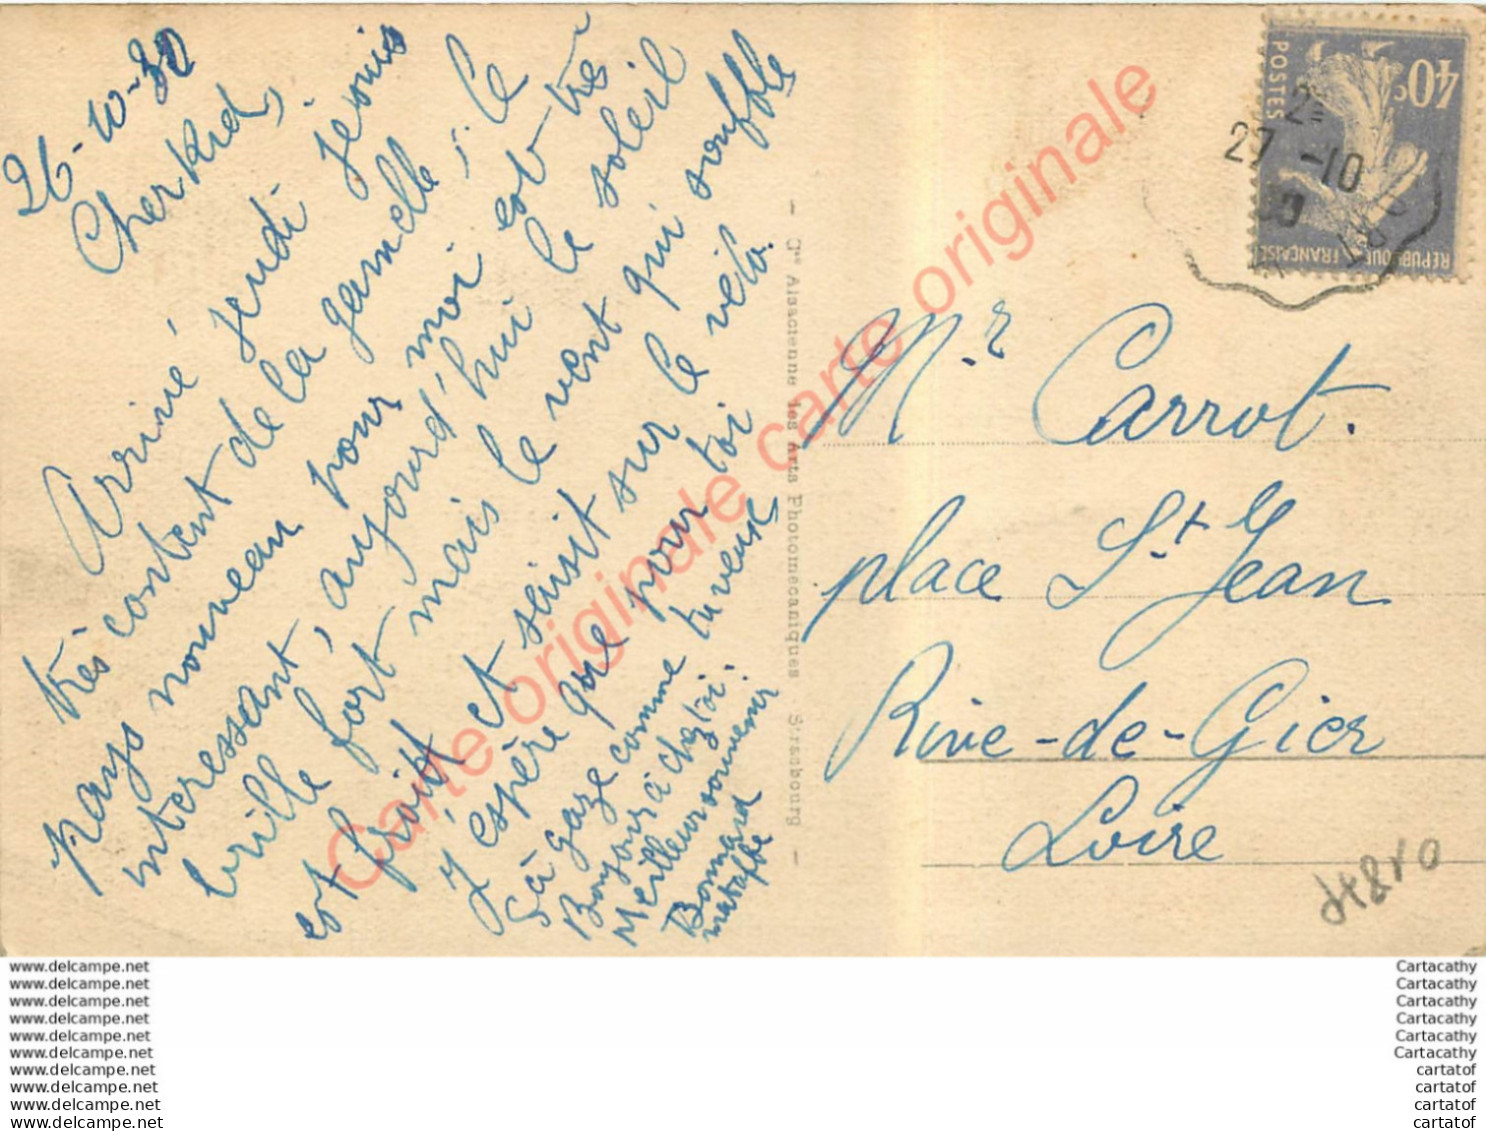 26-10-30
Cher Kid,
Arrivé jeudi je suis
très content de la gamelle, le
pays nouveau pour moi est très
interessant, aujourd'hui le soleil
brille fort mais le vent qui souffle
est froid et saisit sur le vélo.
J'espère que pour toi
sà gaze comme tu veux
Bonjour à chez toi.
Meilleur souvenir
Bonnard
- Cie Alsacienne des Arts Photomécaniques Strasbourg -
POSTES
40c
REPUBLIQUE FRANÇAISE
27 -10
Mr Carrot.
place St Jean
Rive-de-Gier
Loire
Carte originale carte originale carte originale
www.delcampe.net
www.delcampe.net
www.delcampe.net
www.delcampe.net
www.delcampe.net
www.delcampe.net
www.delcampe.net
www.delcampe.net
www.delcampe.net
www.delcampe.net
Cartacathy
Cartacathy
Cartacathy
Cartacathy
Cartacathy
Cartacathy
cartatof
cartatof
cartatof
cartatof